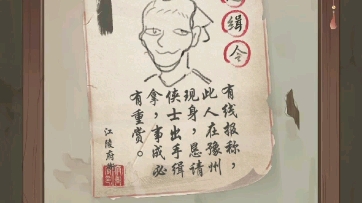 缉
令
有线报称，
此人在豫州
现身，恳请
侠士出手缉
拿，事成必
有重赏。
江陵府